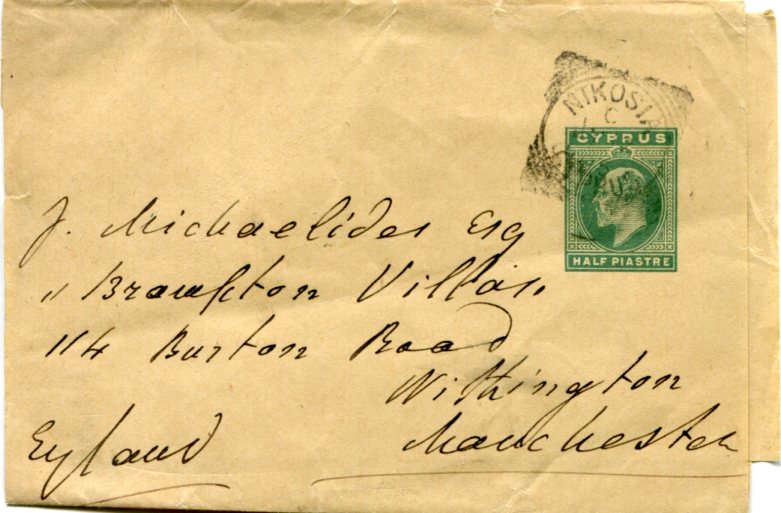 NIKOSIA
C
CYPRUS
HALF PIASTRE
J. Michaelides Esq
"Brampton Villas"
114 Burton Road
Withington
Manchester
England